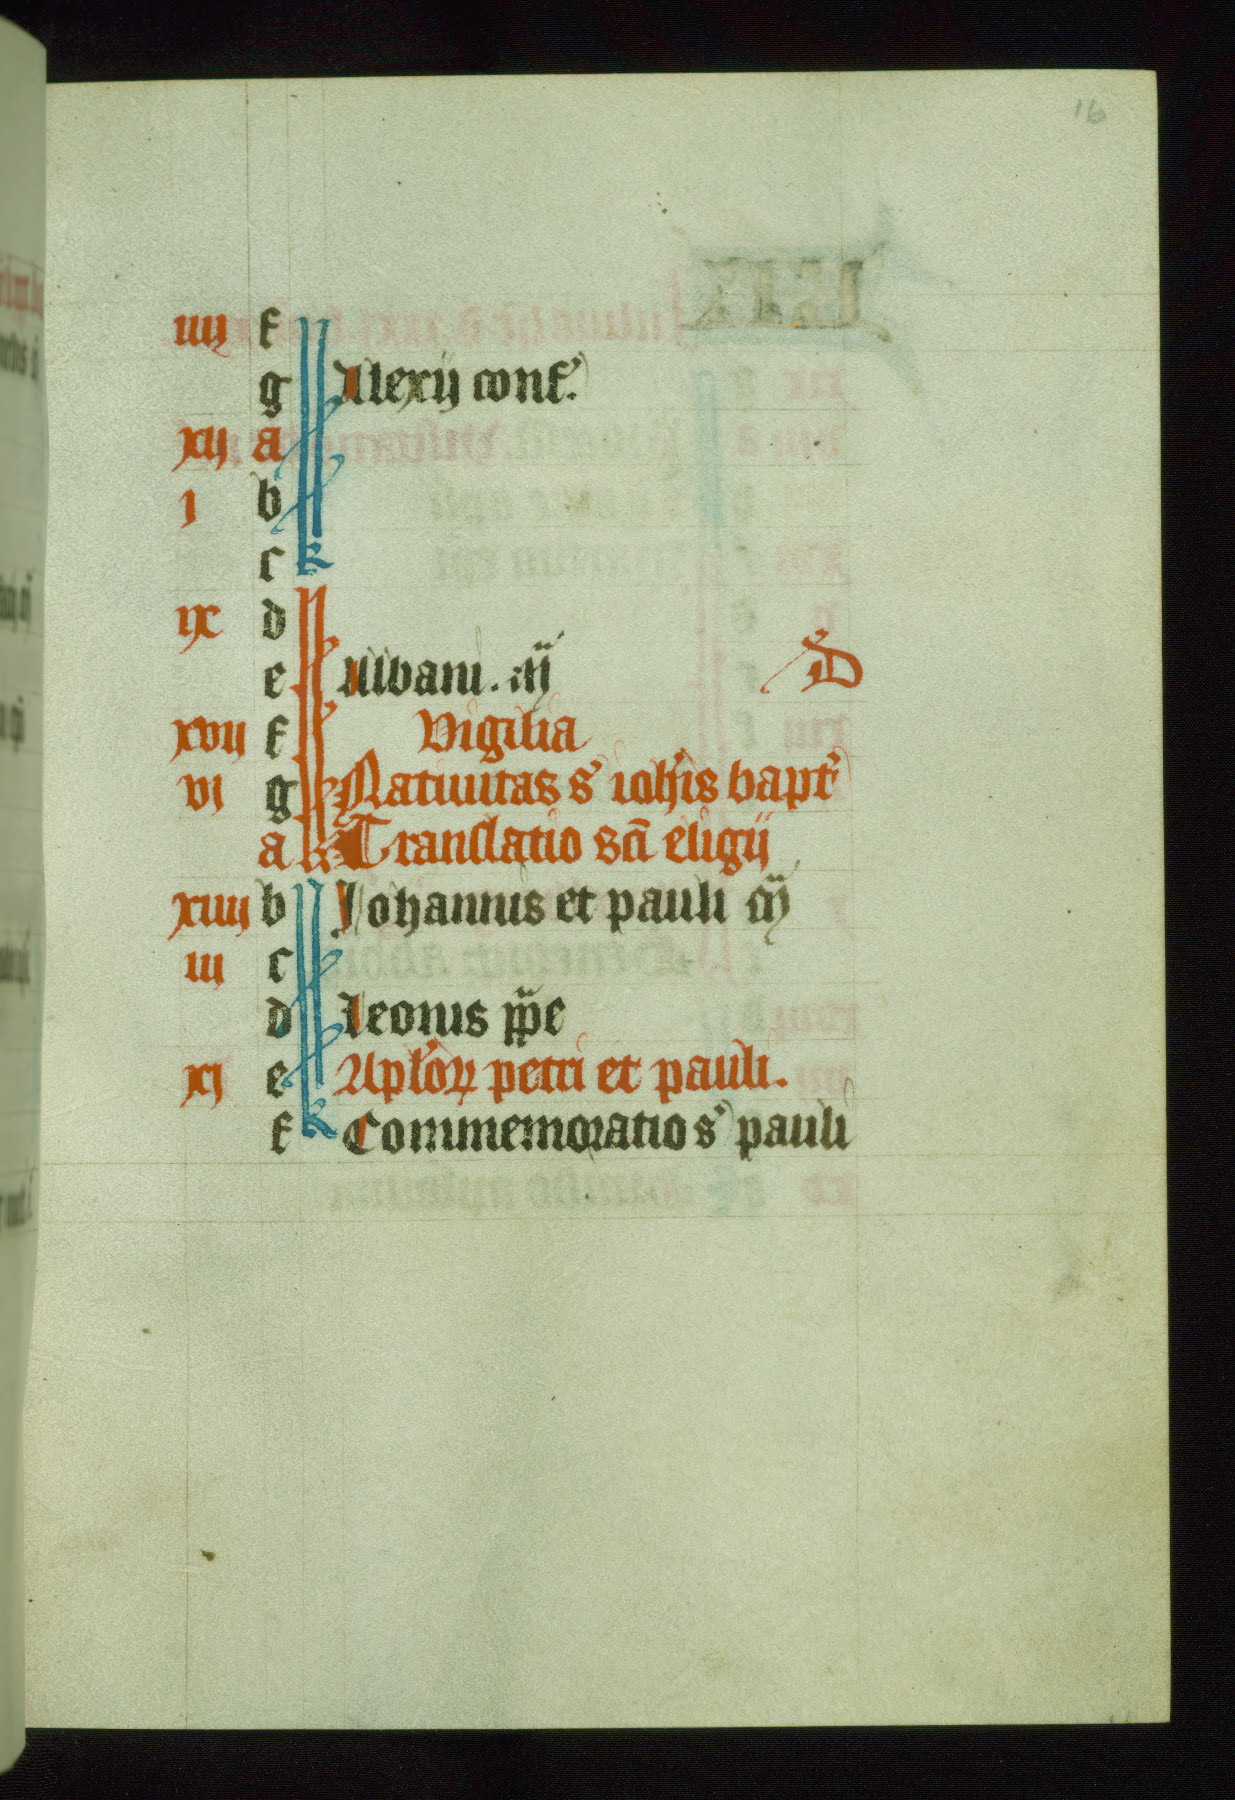 16
iiij f
g Alexij conf.
xij a
i b
c
ix d
e Albani. m̄ D
xvij f Vigilia
vi g Natiuitas s' ioh'is bapt'
a Translatio sc̄i eligij
xiiij b Johannis et pauli m̄
iij c
d Leonis pp̄e
xi e Apl'oꝝ petri et pauli.
f Commemoratio s' pauli